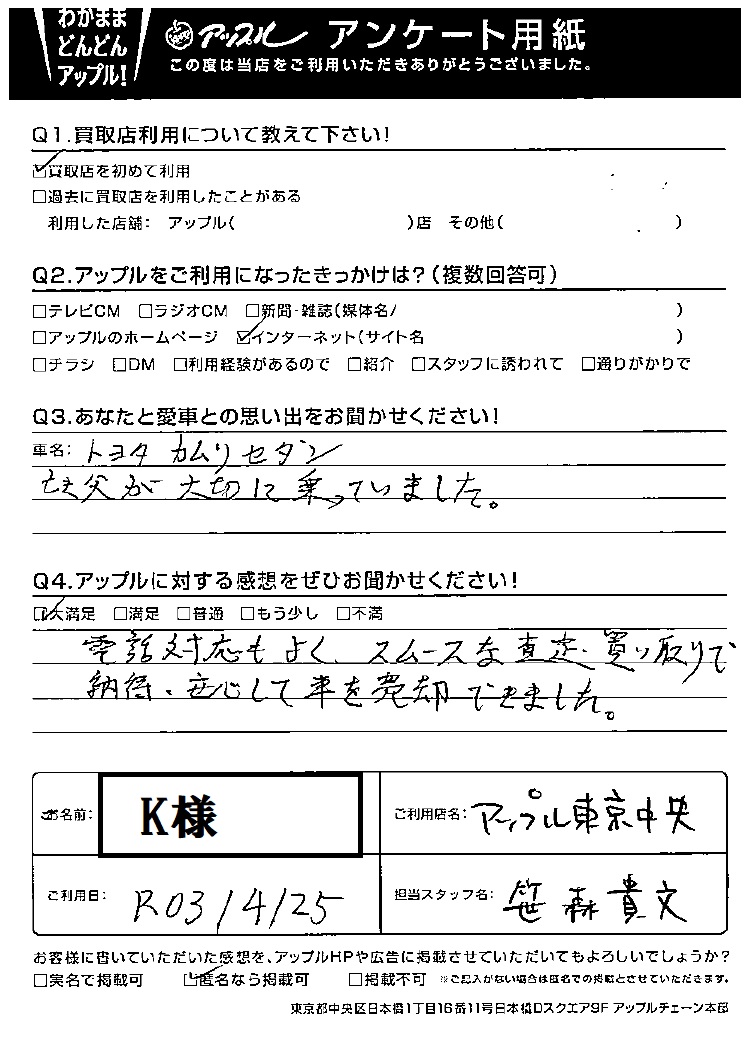 わがまま
どんどん
アップル!
アップル アンケート用紙
この度は当店をご利用いただきありがとうございました。
Q1.買取店利用について教えて下さい!
☑買取店を初めて利用
□過去に買取店を利用したことがある
利用した店舗: アップル( )店 その他( )
Q2.アップルをご利用になったきっかけは?(複数回答可)
□テレビCM □ラジオCM □新聞・雑誌(媒体名/ )
□アップルのホームページ ☑インターネット(サイト名 )
□チラシ □DM □利用経験があるので □紹介 □スタッフに誘われて □通りがかりで
Q3.あなたと愛車との思い出をお聞かせください!
車名: トヨタ カムリセダン
亡父が大切に乗っていました。
Q4.アップルに対する感想をぜひお聞かせください!
☑大満足 □満足 □普通 □もう少し □不満
電話対応もよく、スムースな査定・買い取りで
納得・安心して車を売却できました。
お名前: K様
ご利用店名: アップル東京中央
ご利用日: R03/4/25
担当スタッフ名: 笹森貴文
お客様に書いていただいた感想を、アップルHPや広告に掲載させていただいてもよろしいでしょうか?
□実名で掲載可 ☑匿名なら掲載可 □掲載不可 ※ご記入がない場合は匿名での掲載とさせていただきます。
東京都中央区日本橋1丁目16番11号日本橋Dスクエア9F アップルチェーン本部